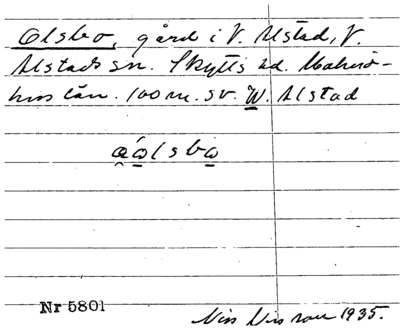 Olsbo, gård i V. Alstad, V.
Alstads sn. Skytts hd. Malmö-
hus län. 100 m. sv. W. Alstad
Nr 5801
Nils Nilsson 1935.